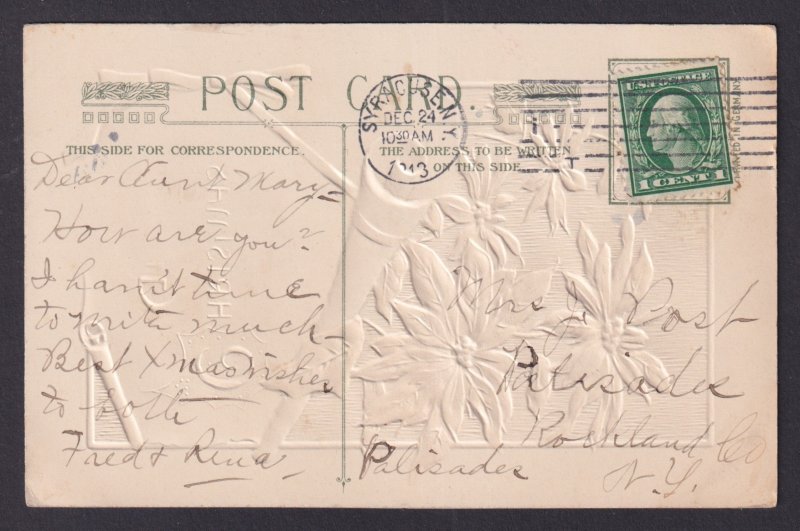 POST CARD
THIS SIDE FOR CORRESPONDENCE.
THE ADDRESS TO BE WRITTEN
ON THIS SIDE
SYRACUSE, N.Y.
DEC 24
10 30 AM
1913
U.S. POSTAGE
1 CENT 1
Dear Aunt Mary -
How are you?
I havn't time
to write much -
Best Xmas wishes
to both
Fred & Rena
Mrs J. Post
Palisades
Rockland Co
N.Y.
Palisades